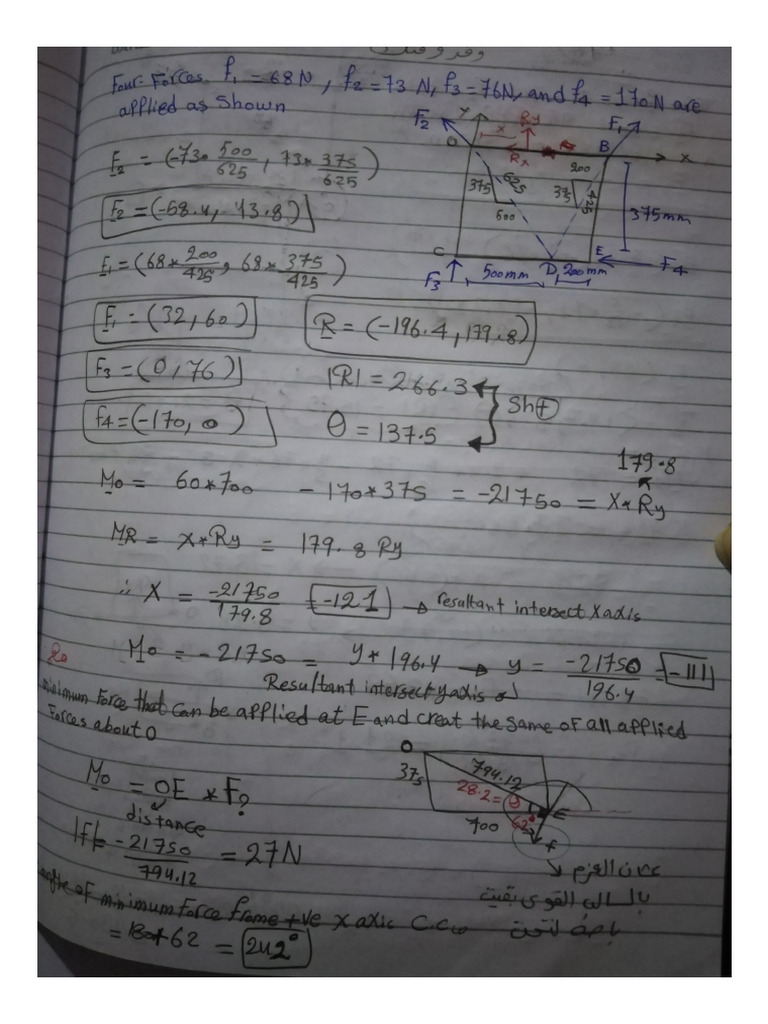 Four Forces f1 = 68N , f2 = 73 N, f3 = 76N, and f4 = 170N are
applied as shown
F2 = (-73* 500/625 , 73* 375/625)
F2 = (-58.4, 43.8)
F1 = (68* 200/425, 68* 375/425)
F1 = (32, 60)
R = (-196.4, 179.8)
F3 = (0, 76)
|R| = 266.3
Sh +
f4 = (-170, 0)
θ = 137.5
F2
Y
x
Ry
F1
O
Rx
B
x
200
375
625
375
425
500
375mm
C
D
E
F3
500mm
200mm
F4
179.8
Mo = 60*700 - 170*375 = -21750 = X* Ry
MR = X* Ry = 179.8 Ry
∴ X = -21750/179.8 = -121 → resultant intersect X axis
Mo = -21750 = y* 196.4 → y = -21750/196.4 = -111
Resultant intersect y axis
minimum Force that can be applied at E and creat the same of all applied
Forces about O
Mo = OE * F?
distance
|f| = -21750/794.12 = 27N
O
375
794.12
28.2 = θ
E
700
62°
F
عكس القوي
angle of minimum force frome +ve x axic C.C.w
= 180+62 = 242°